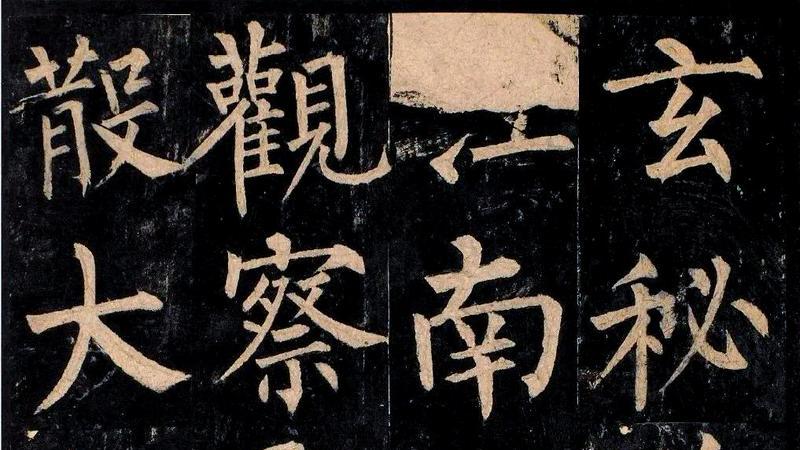 玄秘
江南
觀察
散大